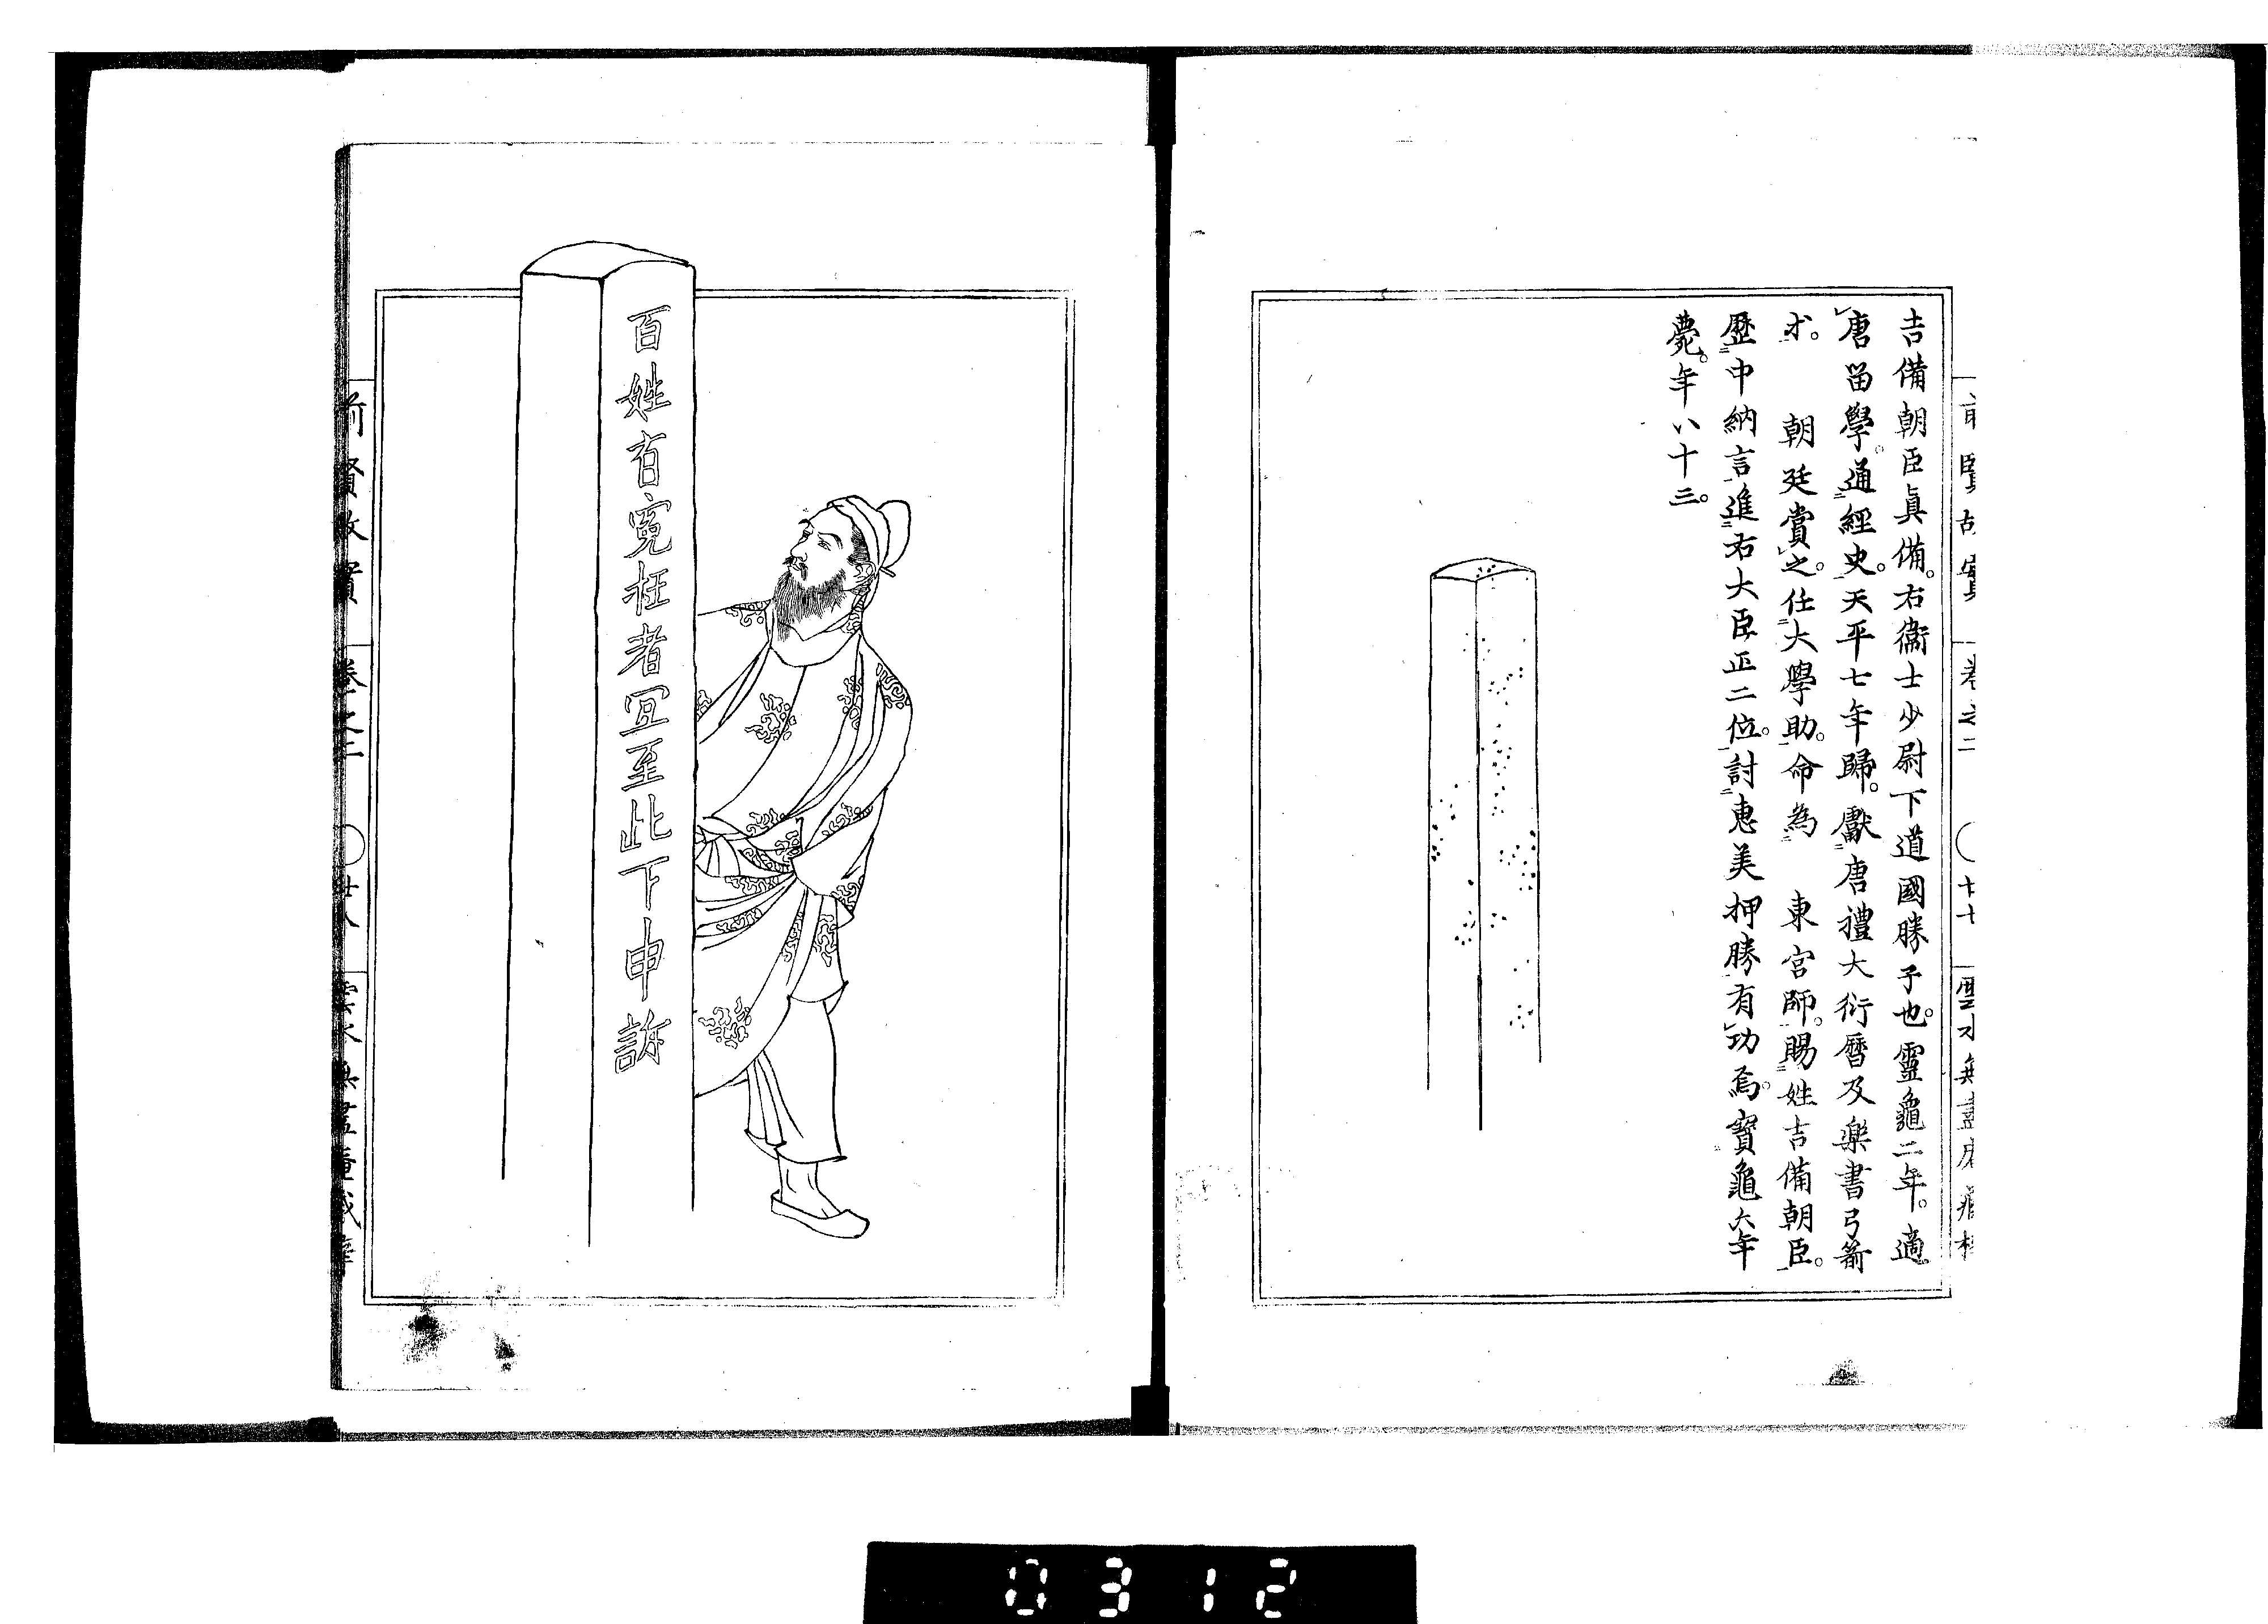 吉備朝臣眞備。右衞士少尉下道國勝子也。靈龜二年。適
唐留學。通經史。天平七年歸。獻唐禮大衍曆及樂書弓箭
求。　朝廷賞之。任大學助。命為　東宮師。賜姓吉備朝臣。
歷中納言進右大臣正二位。討惠美押勝有功焉。寶龜六年
薨。年八十三。
百姓有寃枉者宜至此下申訴
前賢故實　卷之二　〇廿八
0312